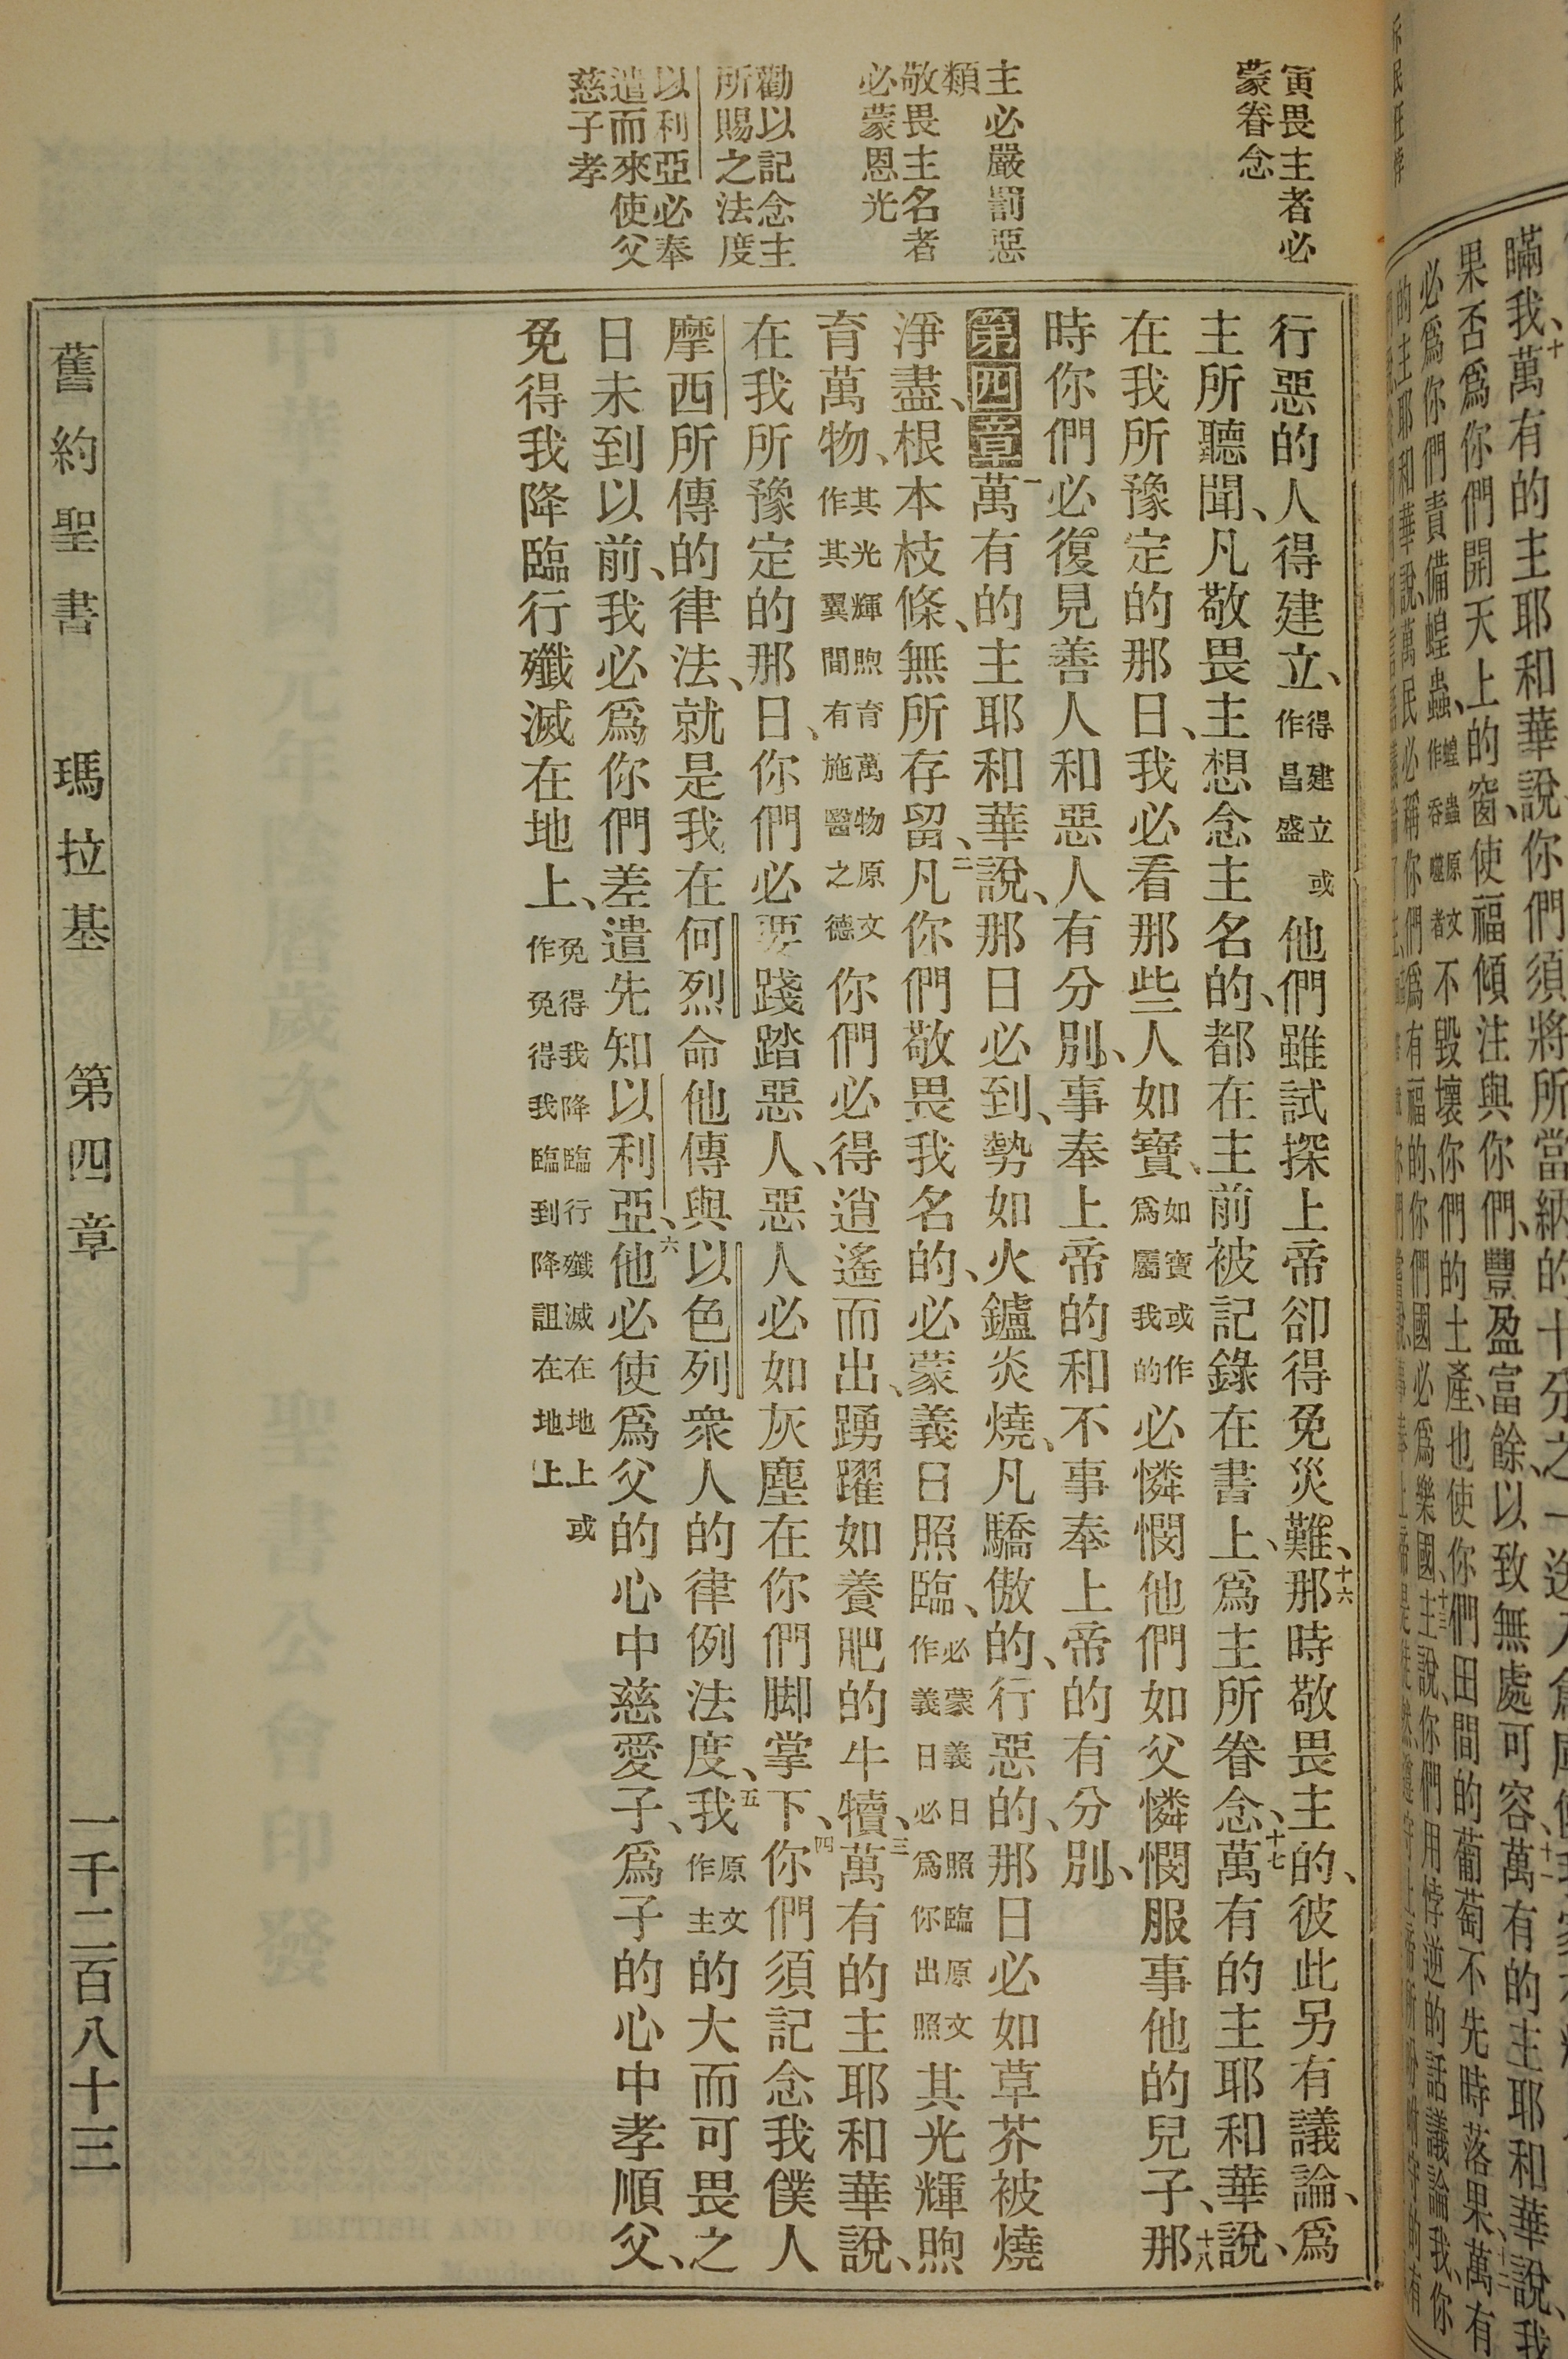 寅畏主者必
蒙眷念
主必嚴罰惡
類
敬畏主名者
必蒙恩光
勸以記念主
所賜之法度
以利亞必奉
遣而來使父
慈子孝
行惡的人得建立、得建立或作昌盛他們雖試探上帝卻得免災難、十六那時敬畏主的、彼此另有議論、爲
主所聽聞、凡敬畏主想念主名的、都在主前被記錄在書上、爲主所眷念、十七萬有的主耶和華說、
在我所豫定的那日、我必看那些人如寶、如寶或作爲屬我的必憐憫他們如父憐憫服事他的兒子、十八那
時你們必復見善人和惡人有分別、事奉上帝的和不事奉上帝的有分別、
第四章一萬有的主耶和華說、那日必到、勢如火鑪炎燒、凡驕傲的、行惡的、那日必如草芥被燒
淨盡、根本枝條、無所存留、二凡你們敬畏我名的、必蒙義日照臨、必蒙義日照臨原文作義日必爲你出照其光輝煦
育萬物、其光輝煦育萬物原文作其翼間有施醫之德你們必得逍遙而出、踴躍如養肥的牛犢、三萬有的主耶和華說、
在我所豫定的那日、你們必要踐踏惡人、惡人必如灰塵在你們脚掌下、四你們須記念我僕人
摩西所傳的律法、就是我在何烈命他傳與以色列衆人的律例法度、五我原文作主的大而可畏之
日未到以前、我必爲你們差遣先知以利亞、六他必使爲父的心中慈愛子、爲子的心中孝順父、
免得我降臨行殲滅在地上、免得我降臨行殲滅在地上或作免得我臨到降詛在地上
舊約聖書 瑪拉基 第四章 一千二百八十三
瞞我、十萬有的主耶和華說、你們須將所當納的十分之一送入倉
果否爲你們開天上的窗、使福傾注與你們、豐盈富餘、以致無處可容、十一萬有的主耶和華說、我
必爲你們責備蝗蟲、蝗蟲原文作吞噬者不毀壞你們的土產、也使你們田間的葡萄不先時落果、十二萬有
的主耶和華說、萬民必稱你們爲有福的、你們國必爲樂國、十三主說、你們用悖逆的話議論我、你